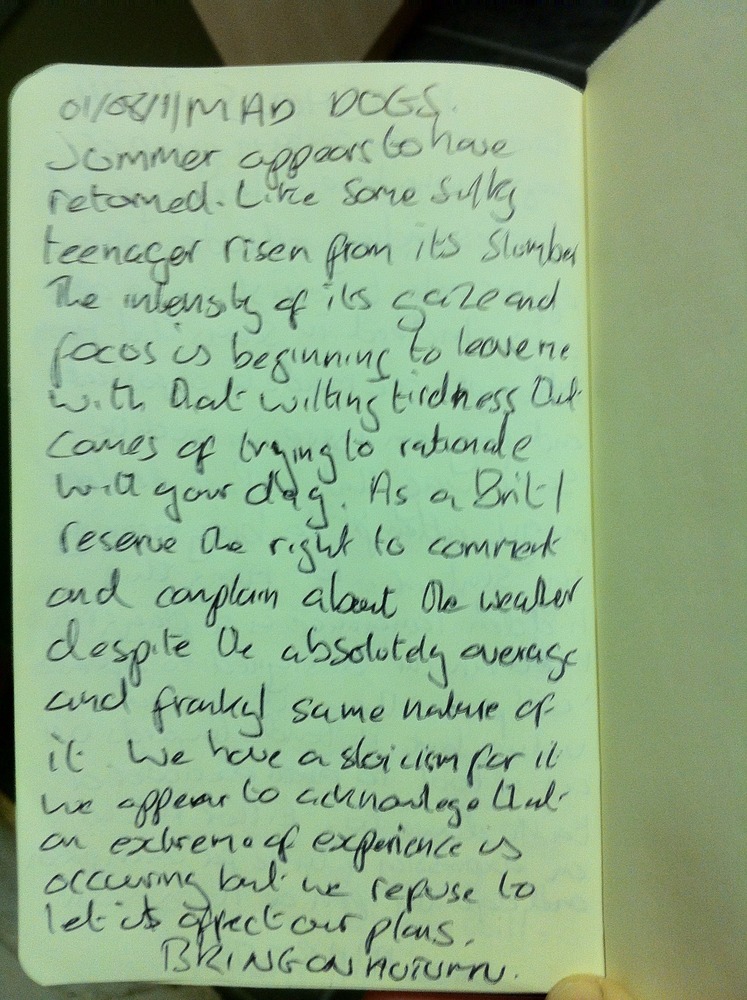 01/08/11/MAD DOGS.
Summer appears to have
returned. Like some sulky
teenager risen from its slumber
The intensity of its gaze and
focus is beginning to leave me
with that wilting tirdness that
comes of trying to rationale
with your day. As a Brit I
reserve the right to comment
and complain about the weather
despite the absolutely average
and frankly same nature of
it. We have a stoicism for it
we appear to acknowlege that
an extreme of experience is
occuring but we refuse to
let it affect our plans.
BRING ON AUTUMN.